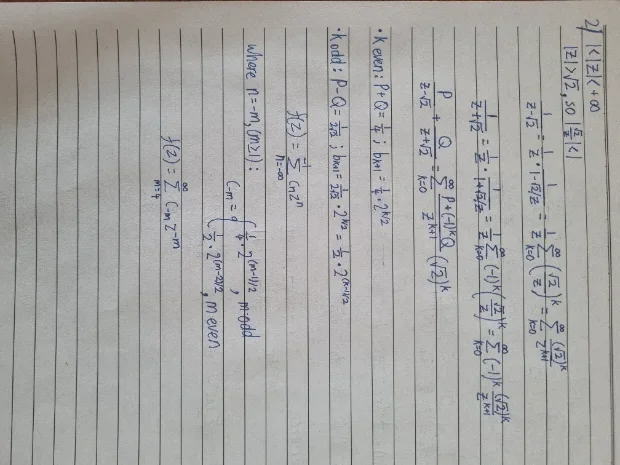 2) √2<|z|<+∞
|z|>√2, so |√2/z|<1
1/(z-√2) = 1/z * 1/(1-√2/z) = 1/z ∞∑k=0 (√2/z)^k = ∞∑k=0 (√2)^k/z^(k+1)
1/(z+√2) = 1/z * 1/(1+√2/z) = 1/z ∞∑k=0 (-1)^k (√2/z)^k = ∞∑k=0 (-1)^k (√2)^k/z^(k+1)
P/(z-√2) + Q/(z+√2) = ∞∑k=0 (P+(-1)^k Q)/z^(k+1) (√2)^k
• k even: P+Q = 1/4 ; b_(k+1) = 1/4 · 2^(k/2)
• k odd: P-Q = 1/(2√2) ; b_(k+1) = 1/(2√2) · 2^(k/2) = 1/2 · 2^((k-1)/2)
f(z) = -1∑n=-∞ c_n z^n
where n=-m, (m≥1) :
c_-m = { 1/4 · 2^((m-1)/2), m odd
1/2 · 2^((m-2)/2), m even
f(z) = ∞∑m=1 c_-m z^-m